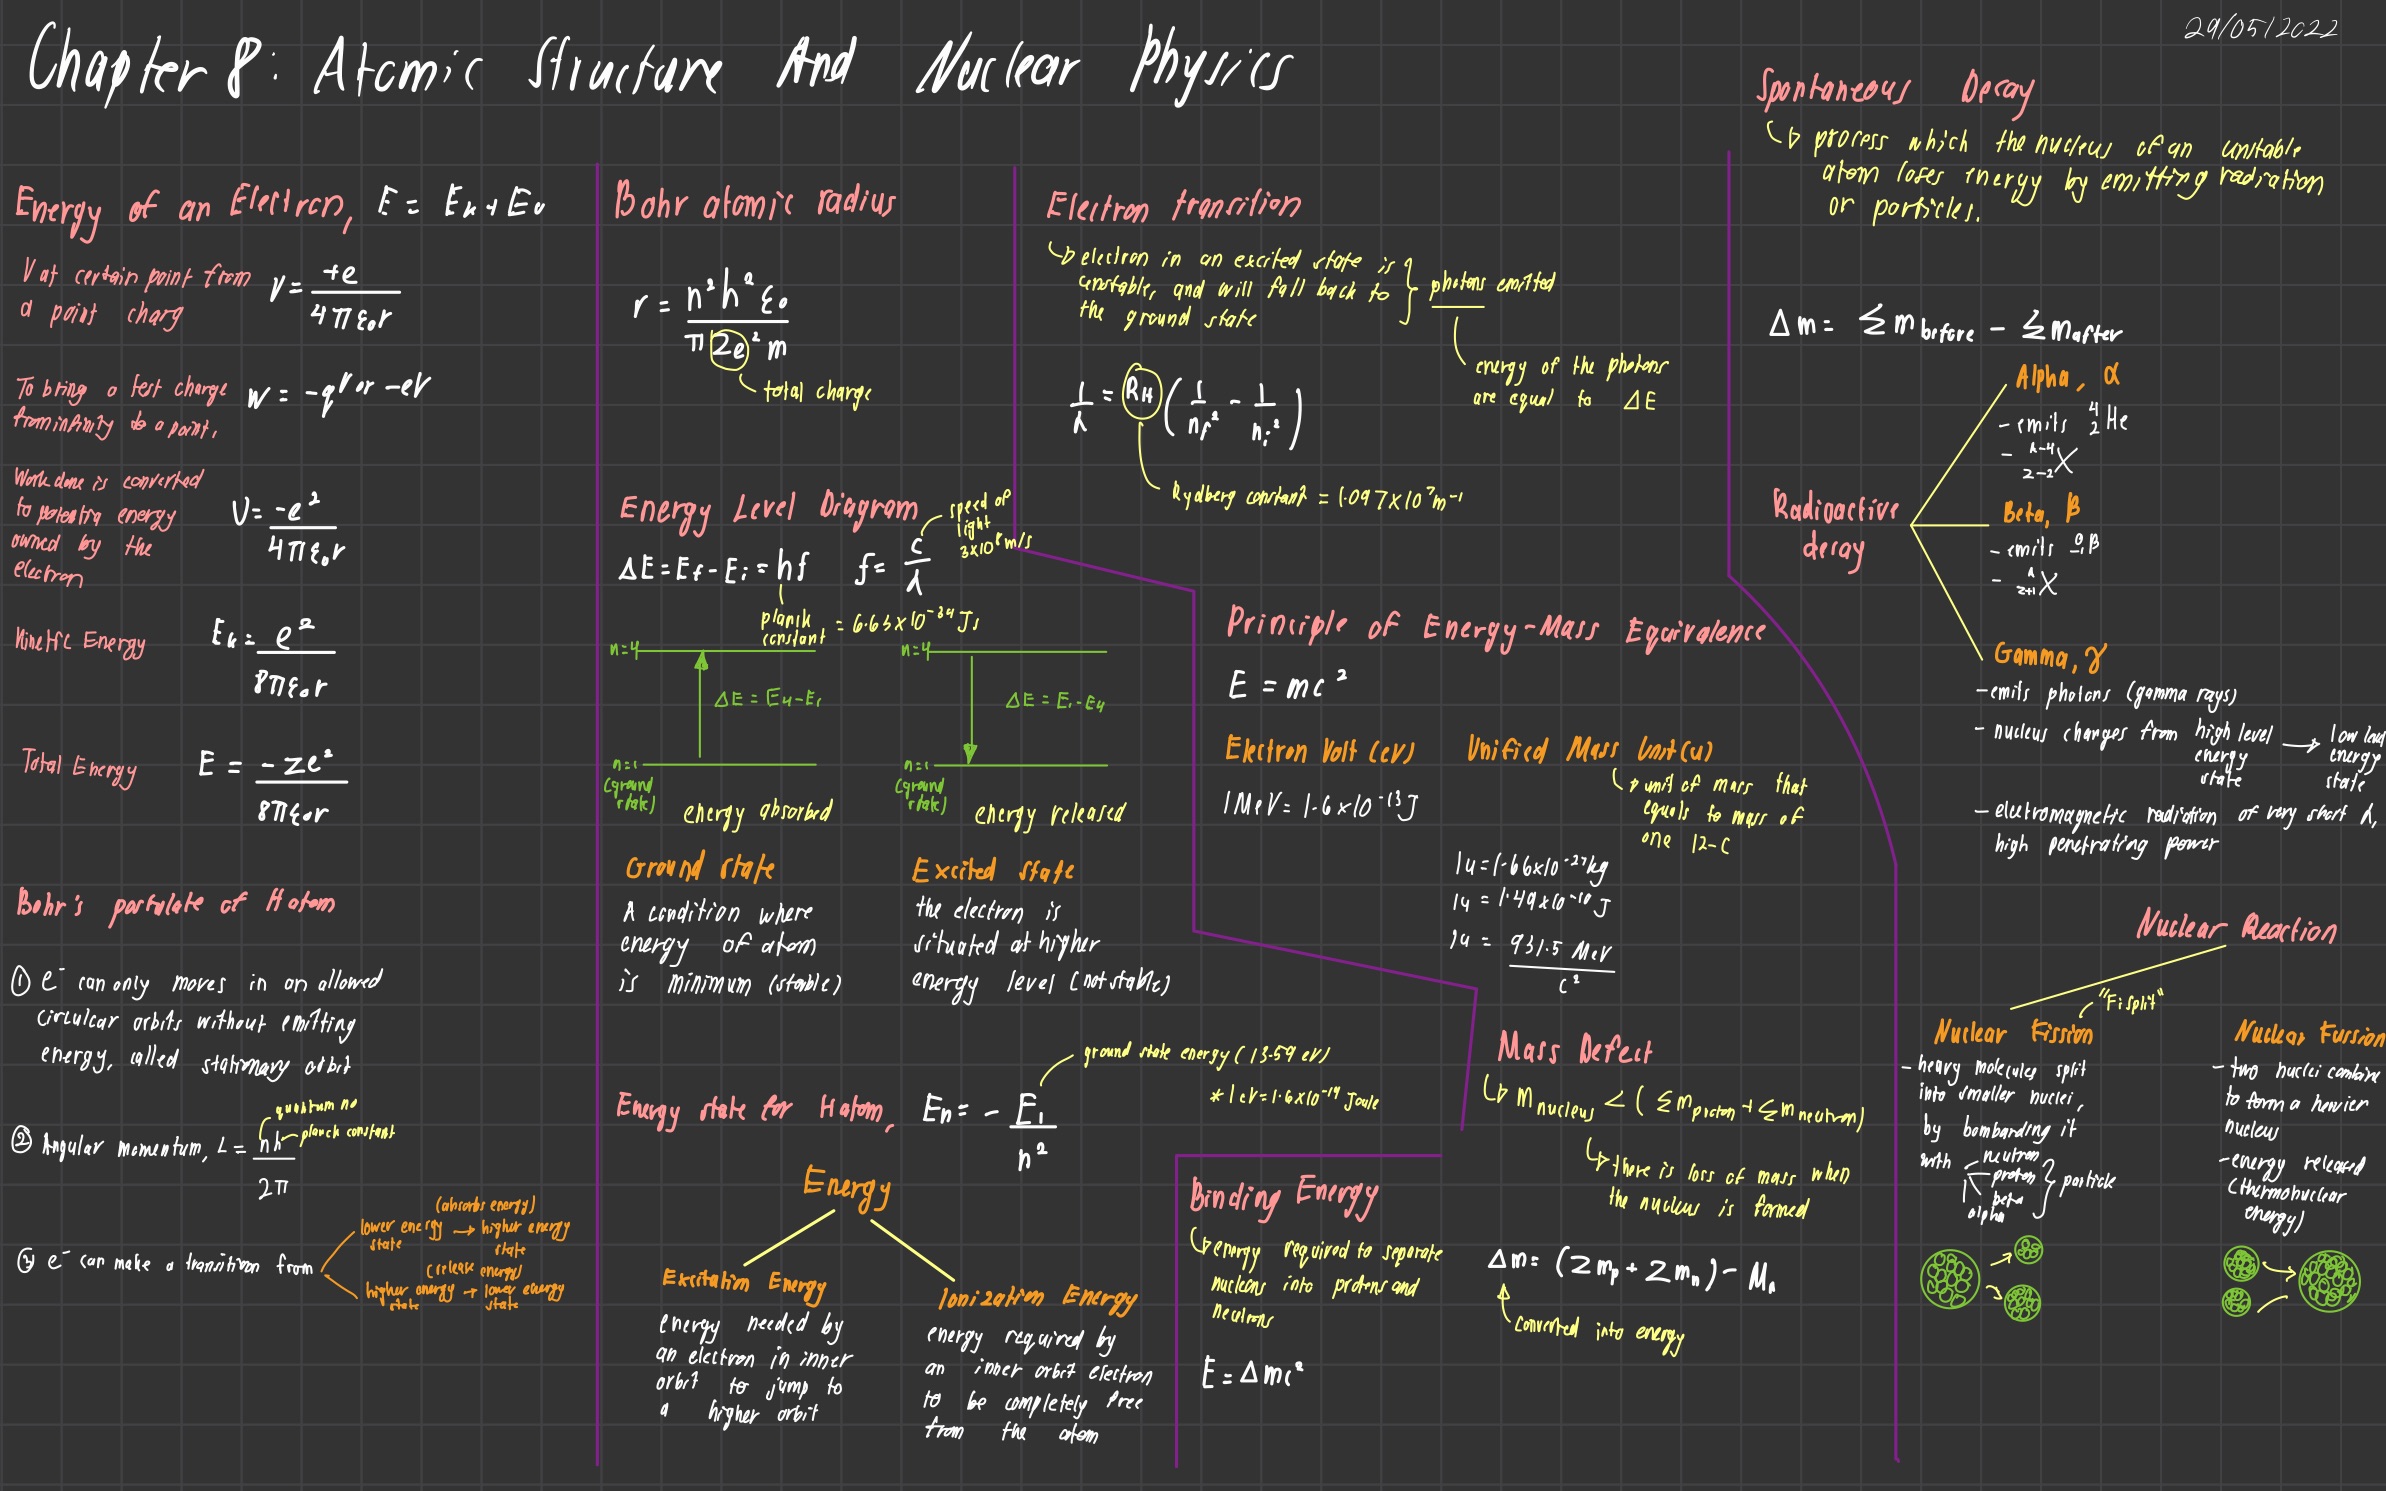 29/05/2022
Chapter 8: Atomic Structure And Nuclear Physics
Energy of an Electron, E = Ek + Eu
V at certain point from
a point charg
V = +e / 4πε₀r
To bring a test charge
from infinity to a point,
W = -qV or -eV
Work done is converted
to potentia energy
owned by the
electron
U = -e² / 4πε₀r
Kinetic Energy
Ek = e² / 8πε₀r
Total Energy
E = -ze² / 8πε₀r
Bohr's postulate of H atom
① e⁻ can only moves in an allowed
circulcar orbits without emitting
energy, called stationary orbit
quantum no
planck constant
② Angular momentum, L = nh / 2π
③ e⁻ can make a transition from
(absorbs energy)
lower energy state → higher energy state
(release energy)
higher energy state → lower energy state
Bohr atomic radius
r = n²h²ε₀ / πZe²m
total charge
Energy Level Diagram
ΔE = Ef - Ei = hf
f = c / λ
speed of
light
3×10⁸ m/s
planck
constant = 6.63×10⁻³⁴ Js
n=4
ΔE = E4 - E1
n=1
(ground
state)
energy absorbed
n=4
ΔE = E1 - E4
n=1
(ground
state)
energy released
Ground state
A condition where
energy of atom
is minimum (stable)
Excited state
the electron is
situated at higher
energy level (not stable)
Energy state for H atom, En = - E1 / n²
ground state energy (13.59 eV)
* 1 eV = 1.6×10⁻¹⁹ Joule
Energy
Excitation Energy
energy needed by
an electron in inner
orbit to jump to
a higher orbit
Ionization Energy
energy required by
an inner orbit electron
to be completely free
from the atom
Electron transition
electron in an excited state is
unstable, and will fall back to
the ground state
photons emitted
energy of the photons
are equal to ΔE
1/λ = RH (1/nf² - 1/ni²)
Rydberg constant = 1.097×10⁷ m⁻¹
Principle of Energy-Mass Equivalence
E = mc²
Electron Volt (eV)
1 MeV = 1.6×10⁻¹³ J
Unified Mass Unit (u)
unit of mass that
equals to mass of
one 12-C
1u = 1.66×10⁻²⁷ kg
1u = 1.49×10⁻¹⁰ J
1u = 931.5 MeV / c²
Mass Defect
m nucleus < (Σm proton + Σm neutron)
there is loss of mass when
the nucleus is formed
Δm = (Zmp + Zmn) - MA
converted into energy
Binding Energy
energy required to separate
nucleons into protons and
neutrons
E = Δmc²
Spontaneous Decay
process which the nucleus of an unstable
atom loses energy by emitting radiation
or particles.
Δm = Σm before - Σm after
Radioactive
decay
Alpha, α
- emits ⁴₂He
- ᴬ⁻⁴ z-2 X
Beta, β
- emits ⁰₋₁β
- ᴬ z+1 X
Gamma, γ
- emits photons (gamma rays)
- nucleus changes from high level energy state → low level energy state
- electromagnetic radiation of very short λ,
high penetrating power
Nuclear Reaction
"Fi split"
Nuclear Fission
- heavy molecules split
into smaller nuclei,
by bombarding it
with neutron
proton
beta
alpha
particle
Nuclear Fussion
- two nuclei combine
to form a hevier
nucleus
- energy released
(thermonuclear
energy)